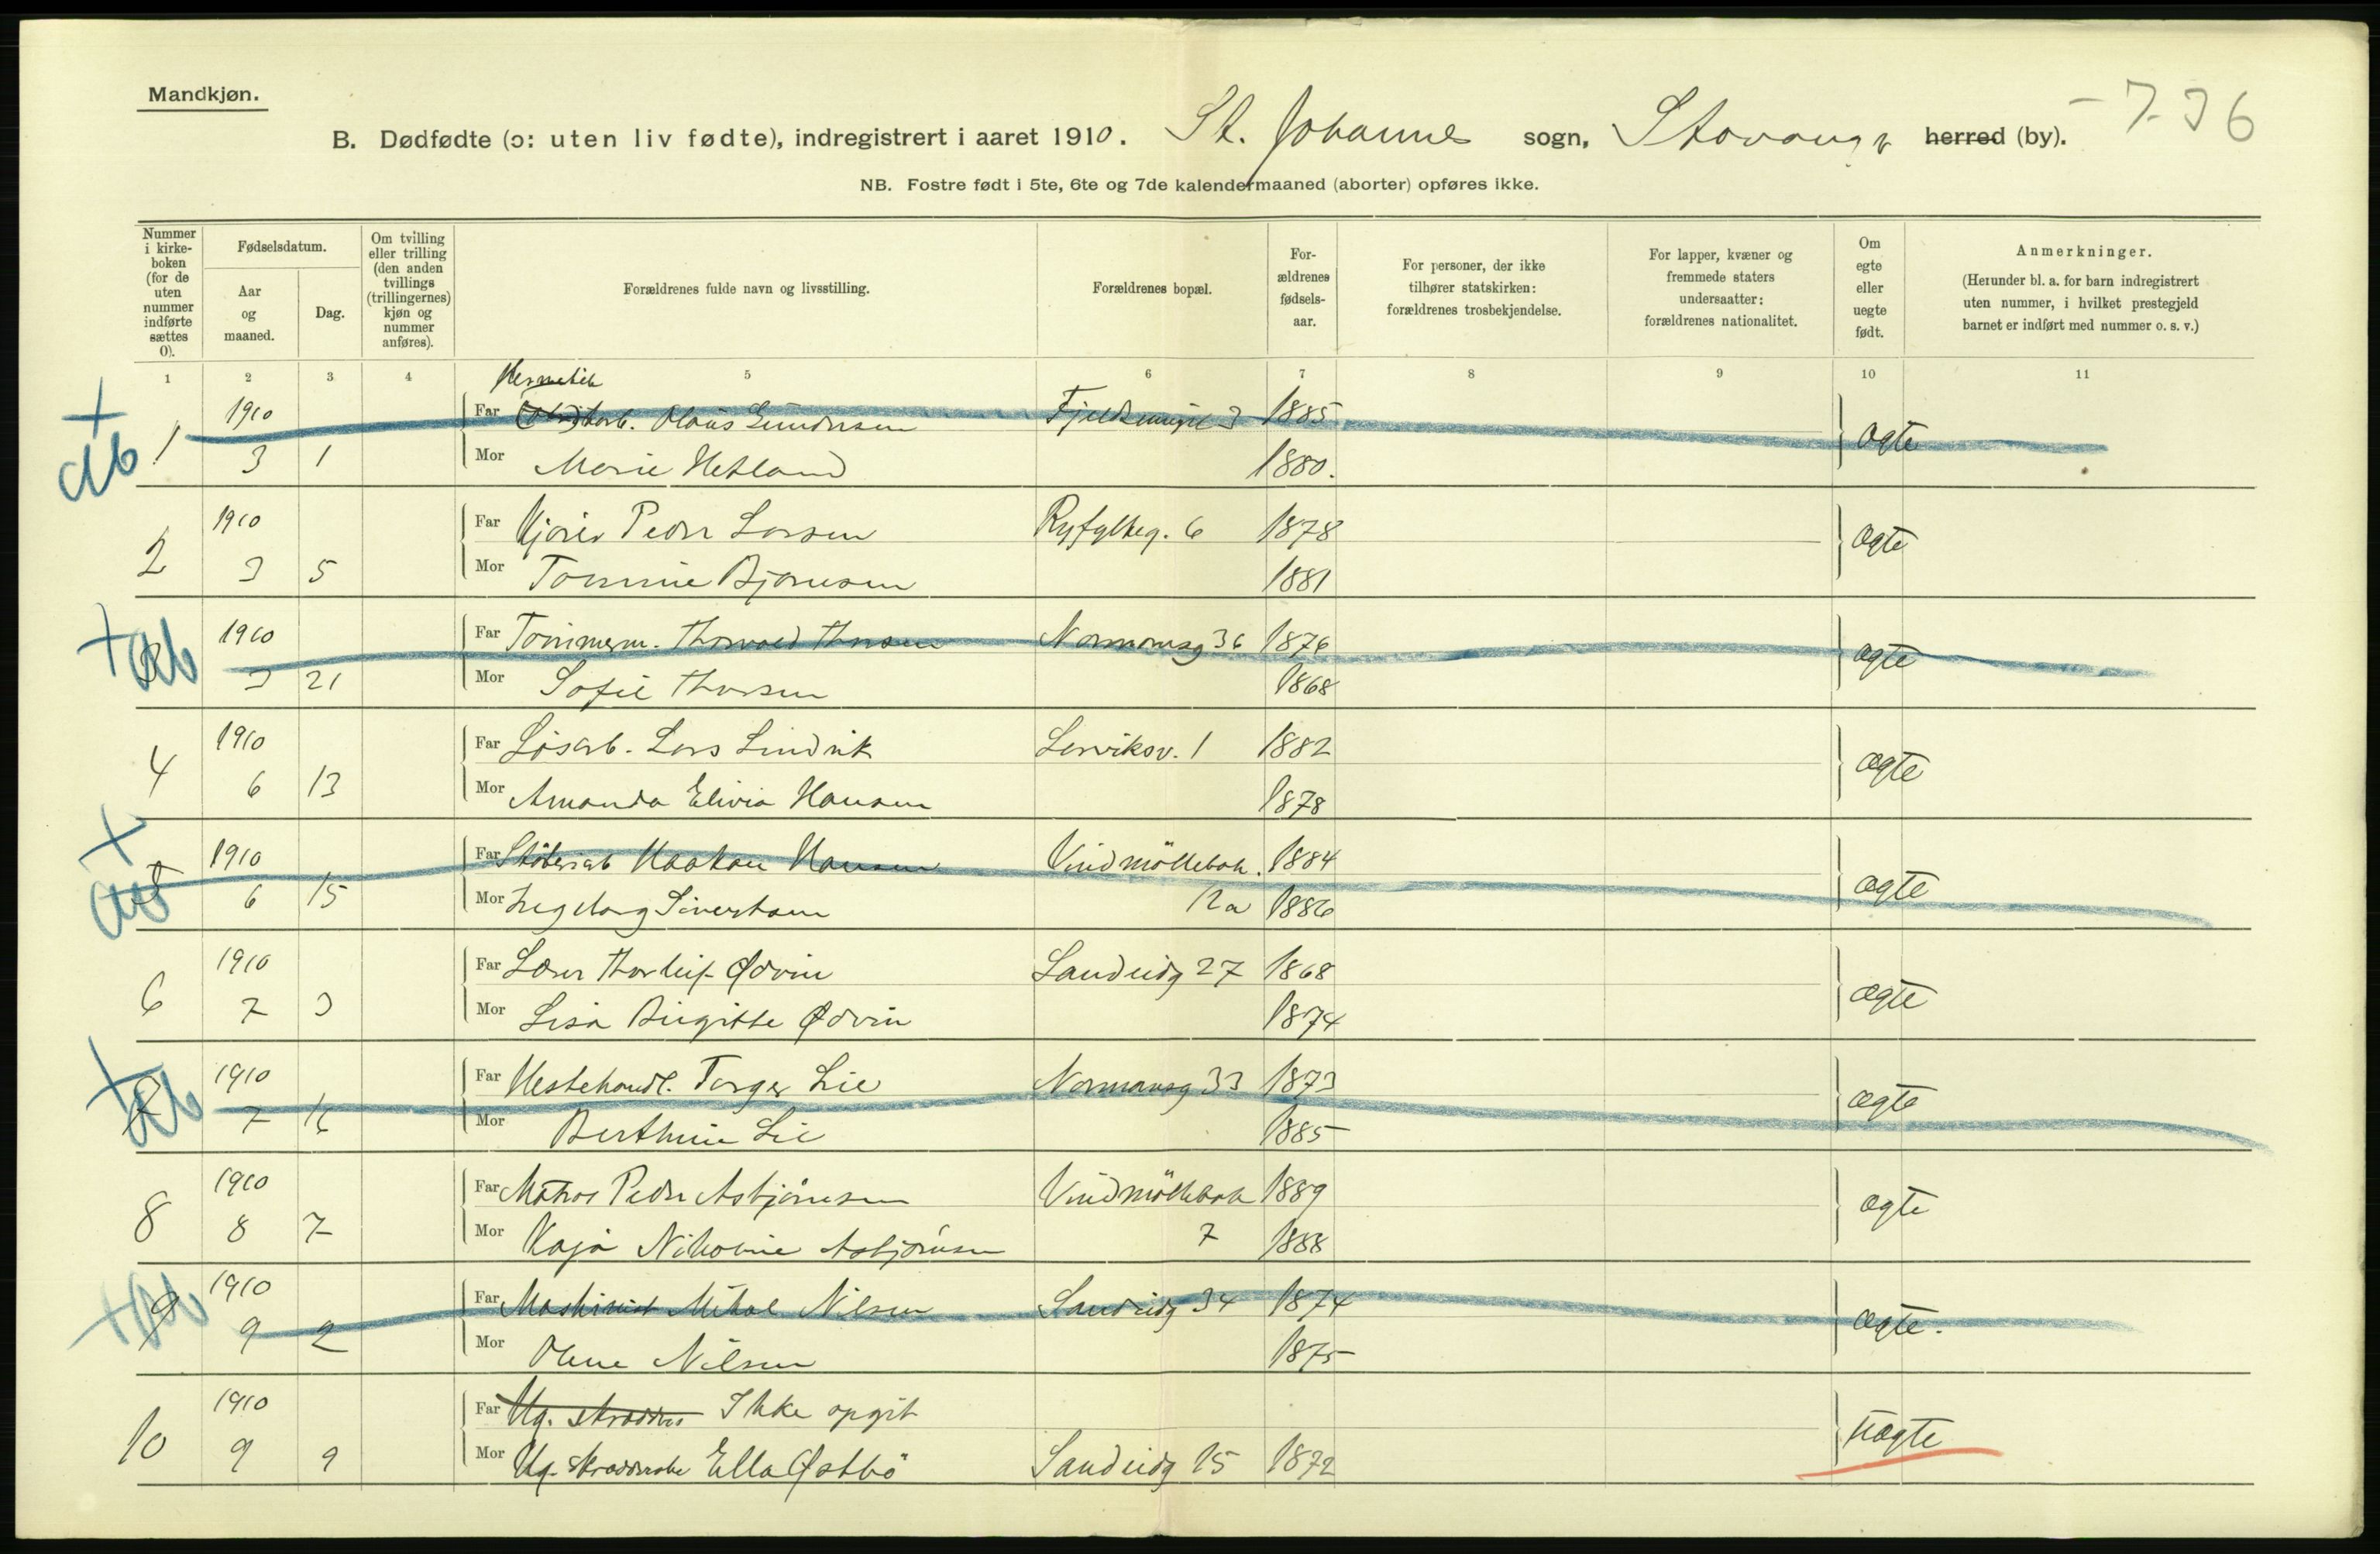 Mandkjøn.
B. Dødfødte (ɔ: uten liv fødte), indregistrert i aaret 1910. St. Johannes sogn, Stavanger herred (by). - 736
NB. Fostre født i 5te, 6te og 7de kalendermaaned (aborter) opføres ikke.
Nummer i kirke-boken (for de uten nummer indførte sættes 0).
Fødselsdatum.
Aar og maaned.
Dag.
Om tvilling eller trilling (den anden tvillings (trillingernes) kjøn og nummer anføres).
Forældrenes fulde navn og livsstilling.
Forældrenes bopæl.
For-ældrenes fødsels-aar.
For personer, der ikke tilhører statskirken: forældrenes trosbekjendelse.
For lapper, kvæner og fremmede staters undersaatter: forældrenes nationalitet.
Om egte eller uegte født.
Anmerkninger.
(Herunder bl. a. for barn indregistrert uten nummer, i hvilket prestegjeld barnet er indført med nummer o. s. v.)
1 2 3 4 5 6 7 8 9 10 11
Hermetik
+ ab 1 1910 Far arb. Olaus Gundersen 3 1885 ægte
3 1 Mor Marie Hetland 1880.
2 1910 Far Peder Larsen Ryfylkeg. 6 1878 ægte
3 5 Mor Tomine Bjørnsen 1881
+ ab 3 1910 Far Tømmerm. Thorvald Thorsen Normansg 36 1876 ægte
3 21 Mor Sofie Thorsen 1868
4 1910 Far Løsarb. Lars Lindvik Lerviksv. 1 1882 ægte
6 13 Mor Amanda Elivia Hansen 1878
+ ab 5 1910 Far Støberiarb Haakon Hansen Vindmøllebak. 1884 ægte
6 15 Mor Ingeborg Sivertsen 12a 1886
6 1910 Far Lærer Thorleif Ødvin Sandeidg 27 1868 ægte
7 3 Mor Lisa Birgitte Ødvin 1874
+ ab 7 1910 Far Hestehandl. Torger Lie Normansg 33 1873 ægte
7 16 Mor Berthine Lie 1885
8 1910 Far Matros Peder Asbjørnsen Vindmøllebak 1889 ægte
8 7 Mor Kaja Nikoline Asbjørnsen 7 1888
+ ab 9 1910 Far Maskinist Mikal Nilsen Sandeidg 34 1874 ægte.
9 2 Mor Olene Nilsen 1875
10 1910 Far Ug. skrædder Ikke opgit uægte
9 9 Mor Ug. Ella Østbö Sandeidg 15 1872